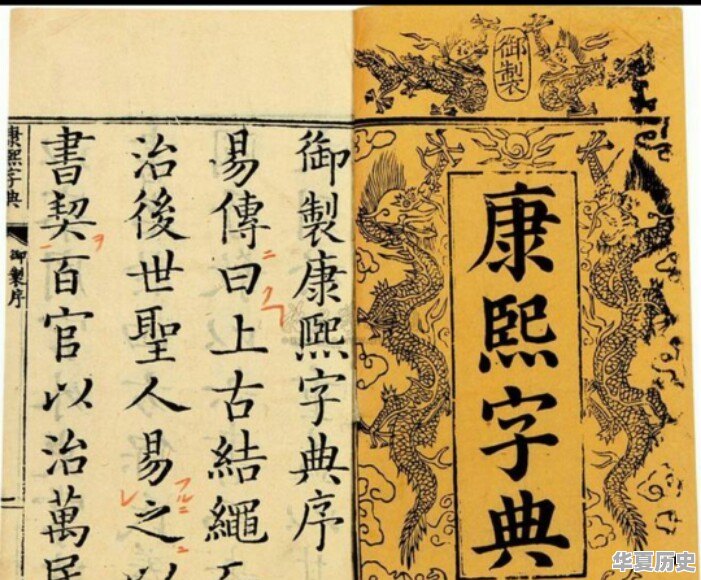 御製
康熙字典
御製康熙字典序
易傳曰上古結繩
治後世聖人易之以
書契百官以治萬民
康熙字典
御製序
华夏历史